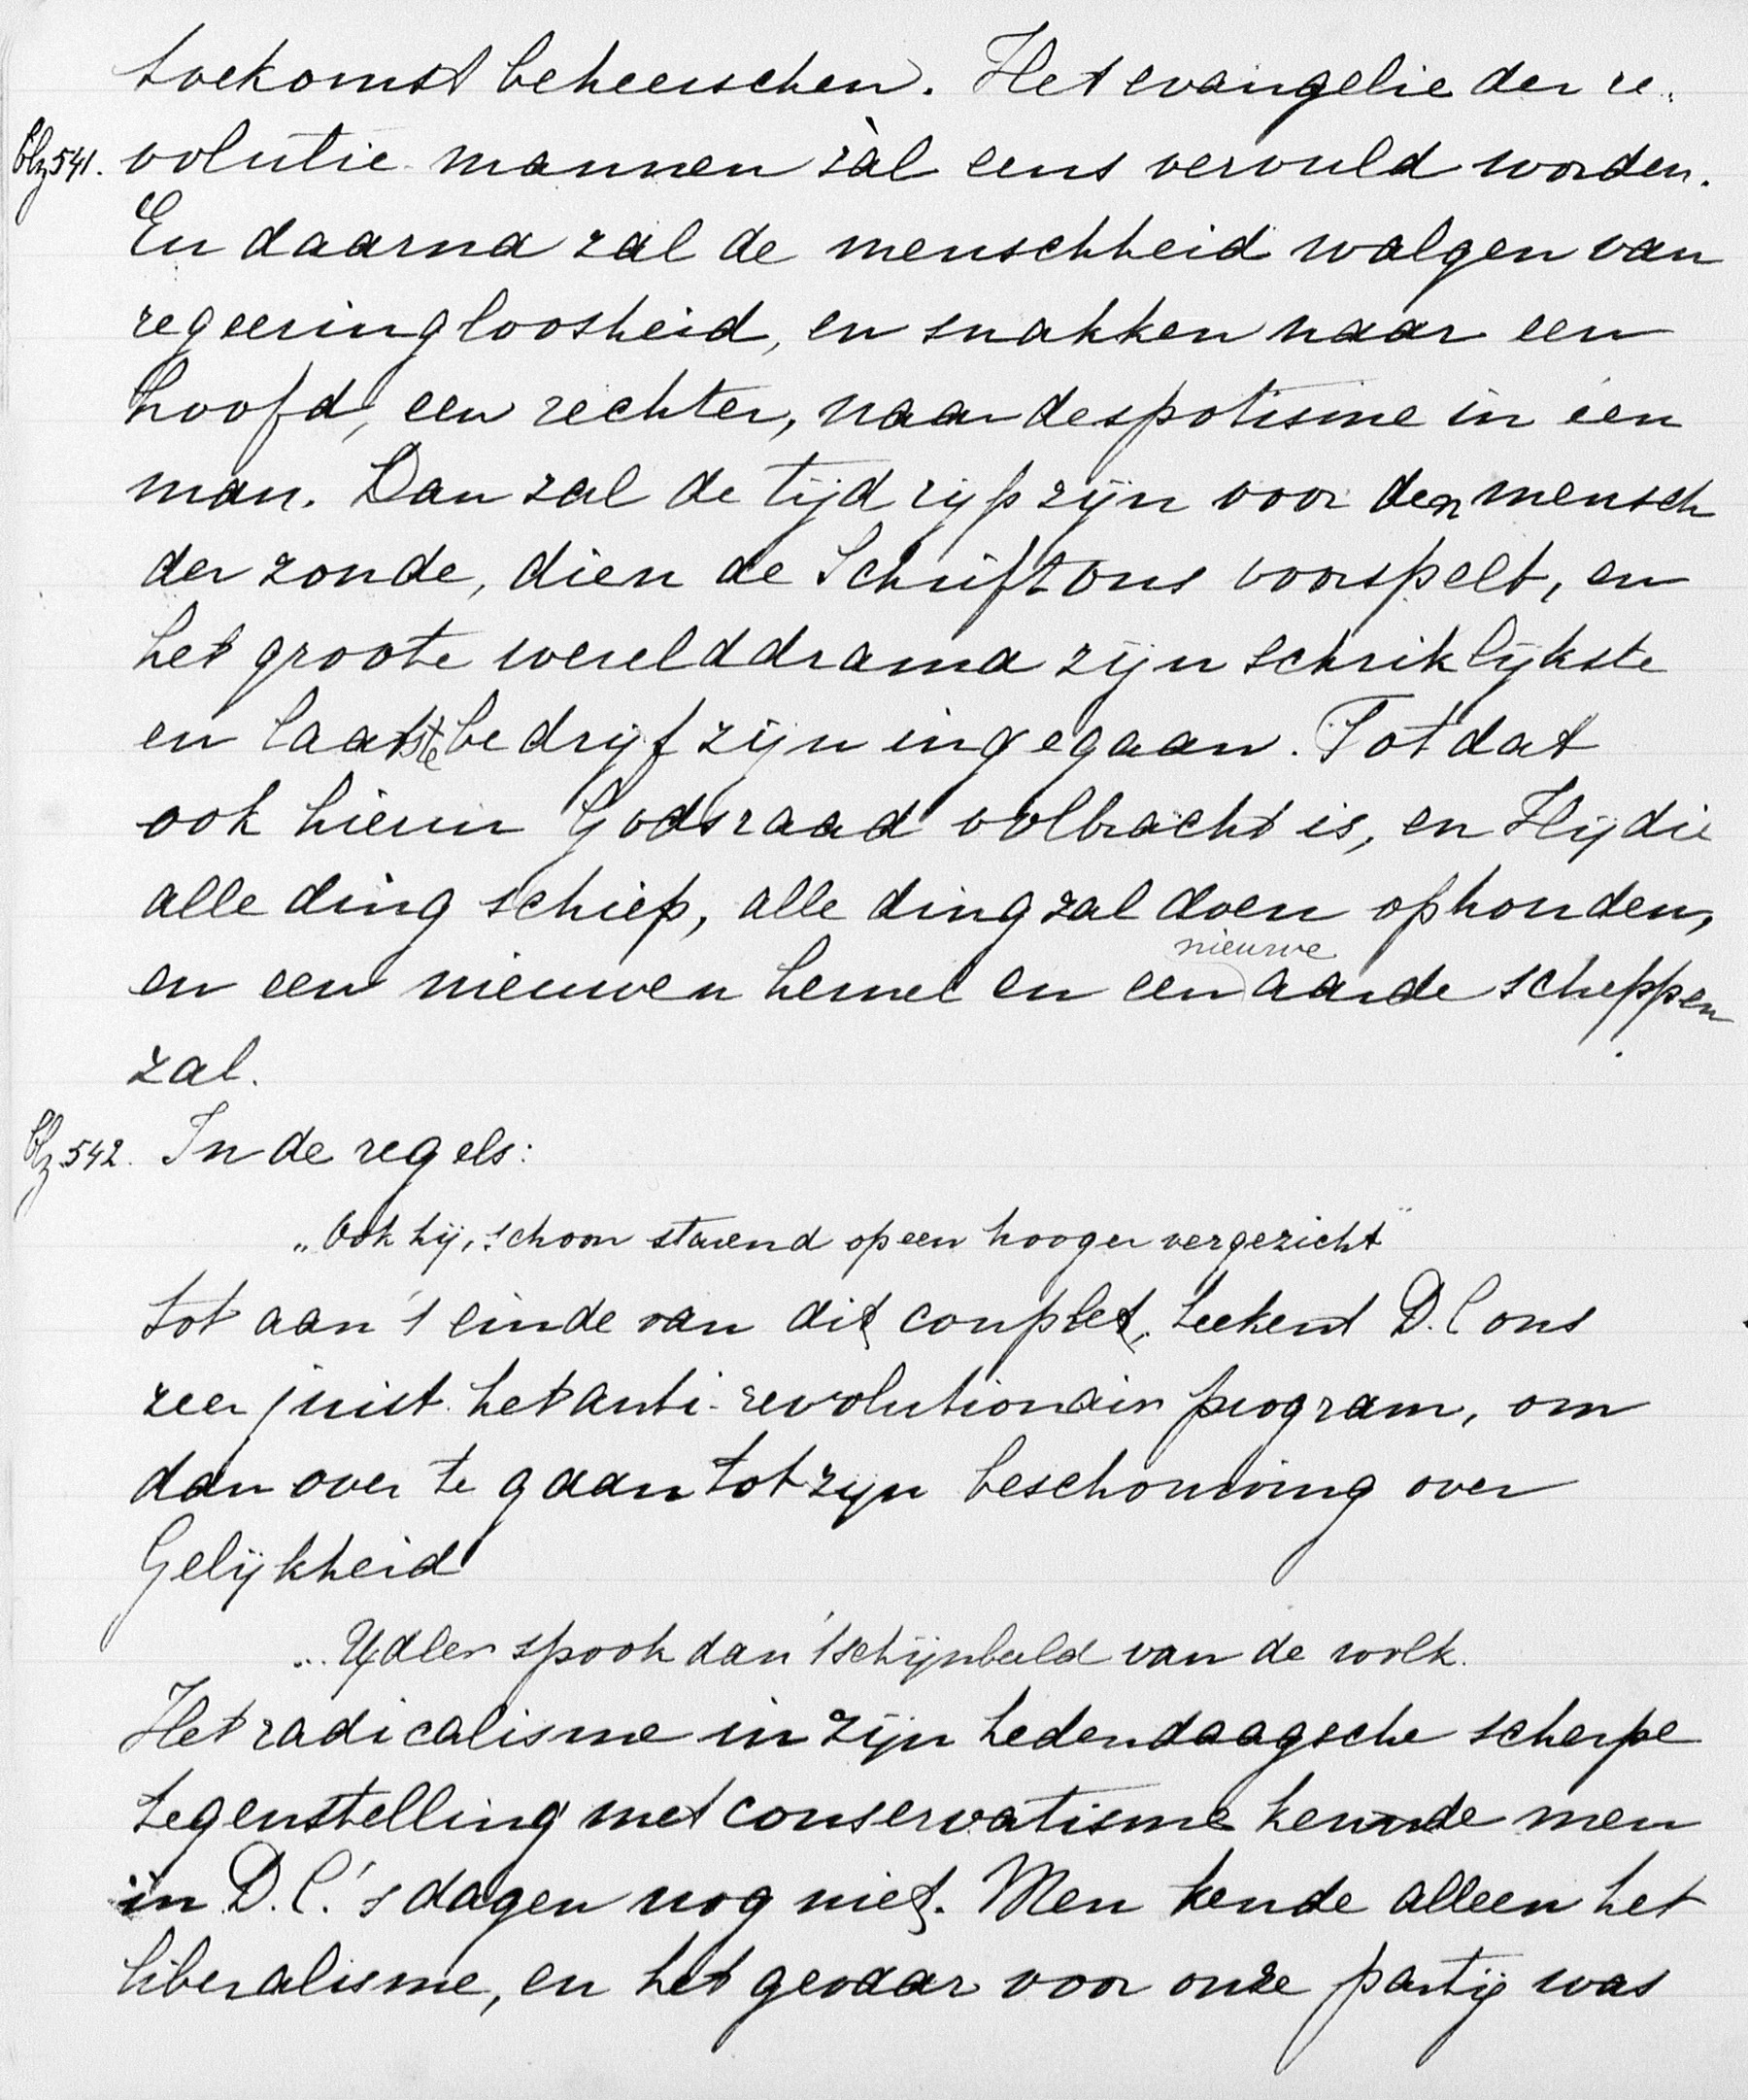 toekomst beheerschen. Het evangelie der re-
blz 541. volutie mannen zàl eens vervuld worden.
En daarna zal de menschheid walgen van
regeeringloosheid, en snakken naar een
hoofd, een rechter, naar despotisme in één
man. Dan zal de tijd rijp zijn voor den mensch
der zonde, dien de Schrift ons voorspelt, en
het groote werelddrama zijn schriklijkste
en laatste bedrijf zijn ingegaan. Totdat
ook hierin Gods raad volbracht is, en Hij die
alle ding schiep, alle ding zal doen ophouden,
en een nieuwen hemel en een nieuwe aarde scheppen
zal.
blz. 542. In de regels:
„Ook hij, schoon starend op een hooger vergezicht"
tot aan 't einde van dit couplet, teekent D.C ons
zeer juist het anti-revolutionair program, om
dan over te gaan tot zijn beschouwing over
Gelijkheid
„.. IJdler spook dan 't schijnbeeld van de wolk.
Het radicalisme in zijn hedendaagsche scherpe
tegenstelling met conservatisme kende men
in D.C.'s dagen nog niet. Men kende alleen het
liberalisme, en het gevaar voor onze partij was